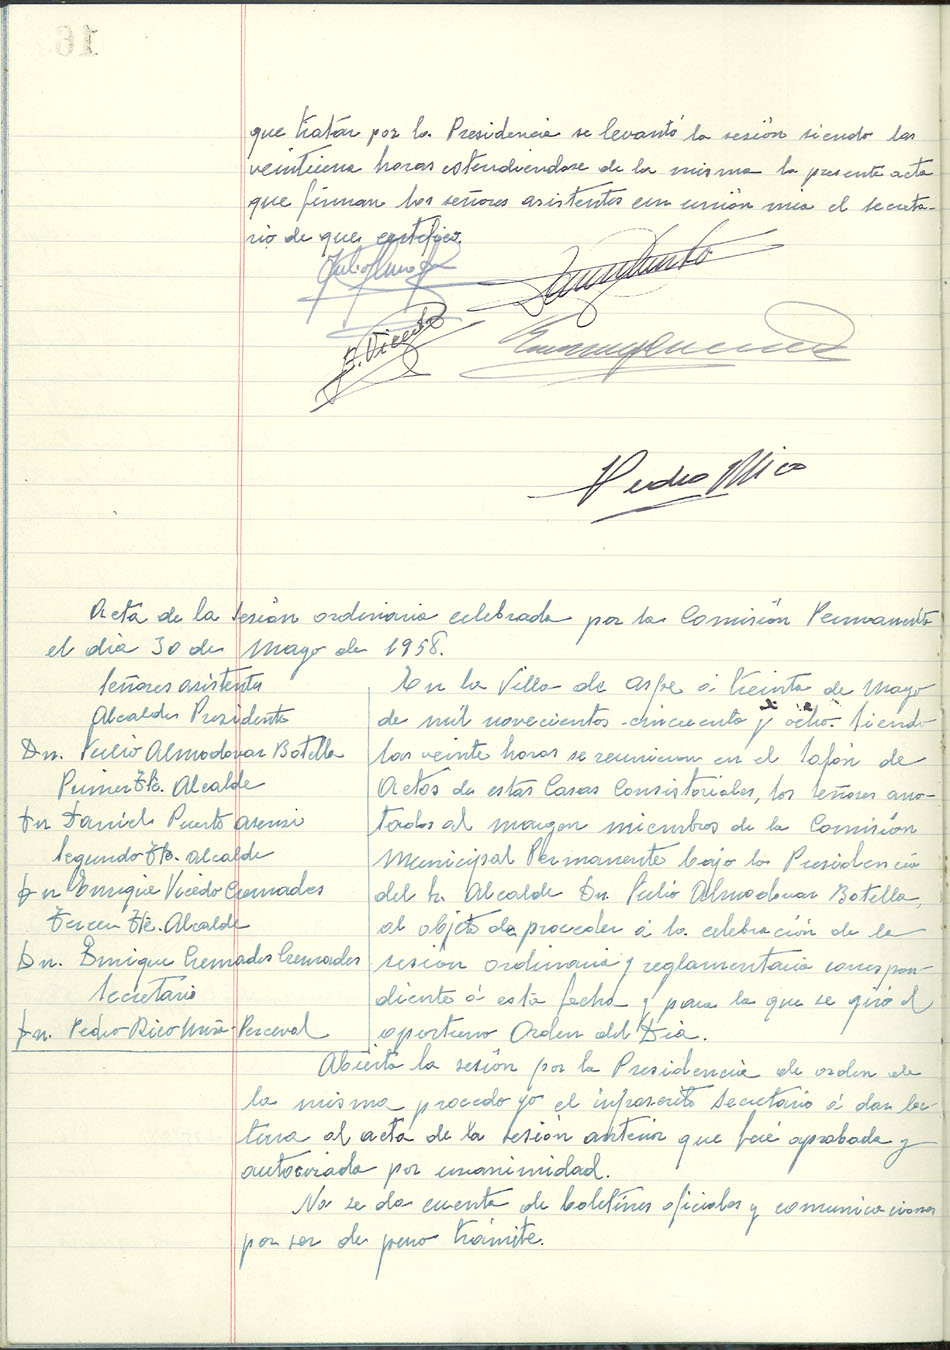 16
que tratar por la Presidencia se levantó la sesión siendo las
veintiuna horas extendiendose de la misma la presente acta
que firman los señores asistentes con unión mia el Secreta-
rio de que certifico.
J. Vicedo
Pedro Rico
Acta de la sesión ordinaria celebrada por la Comisión Permanente
el dia 30 de Mayo de 1958.
Señores asistentes
Alcalde Presidente
Dn. Julio Almodovar Botella
Primer Tte. Alcalde
Dn Daniel Puerto Asensi
Segundo Tte. Alcalde
Dn Enrique Vicedo Cremades
Tercer Tte. Alcalde
Dn. Enrique Cremades Cremades
Secretario
Dn. Pedro Rico Perceval
En la Villa de Aspe á treinta de Mayo
de mil novecientos cincuenta y ocho. Siendo
las veinte horas se reunieron en el Salón de
Actos de estas Casas Consistoriales, los señores ano-
tados al margen miembros de la Comisión
Municipal Permanente bajo la Presidencia
del Sr. Alcalde Dn. Julio Almodovar Botella,
al objeto de proceder á la celebración de la
sesión ordinaria y reglamentaria correspon-
diente á esta fecha y para la que se giró el
oportuno Orden del Dia.
Abierta la sesión por la Presidencia de orden de
la misma procedo yo el infrascrito Secretario á dar lec-
tura al acta de la sesión anterior que fué aprobada y
autorizada por unanimidad.
No se da cuenta de boletines oficiales y comunicaciones
por ser de puro trámite.